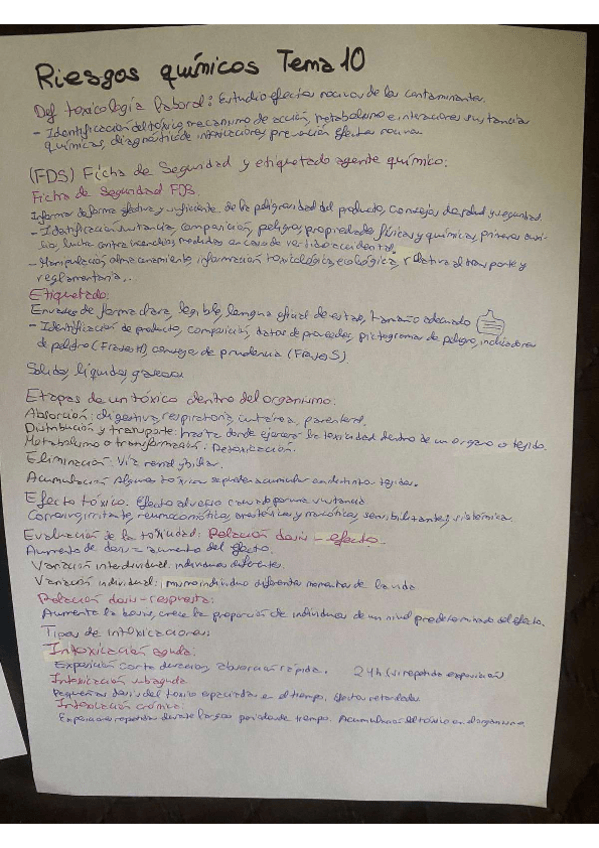 Riesgos químicos Tema 10
Def toxicología laboral: Estudio efectos nocivos de los contaminantes.
- Identificación del tóxico, mecanismo de acción, metabolismo e interacciones sustancias
químicas, diagnóstico de intoxicaciones prevención efectos nocivos.
(FDS) Ficha de Seguridad y etiquetado agente químico:
Ficha de Seguridad FDS.
Informar de forma efectiva y suficiente de la peligrosidad del producto, consejos de salud y seguridad.
- Identificación sustancia, composición, peligros, propiedades físicas y químicas, primeros auxi-
lio, lucha contra incendios, medidas en caso de vertido accidental.
- Manipulación almacenamiento, información toxicológica, ecológica, relativa al transporte y
reglamentaria...
Etiquetado:
Envases de forma clara, legible, lengua oficial de estado, tamaño adecuado
- Identificación de producto, composición, datos de proveedor, pictograma de peligro, indicadores
de peligro (Frases H), consejos de prudencia (Frases S)
Solidos, liquidos, gaseosos
Etapas de un tóxico dentro del organismo:
Absorción: digestiva, respiratoria, cutánea, parenteral.
Distribución y transporte: hasta donde ejercerá la toxicidad dentro de un organo o tejido.
Metabolismo o transformación: Detoxicación.
Eliminación: Via renal y biliar.
Acumulación: Algunos tóxicos se pueden acumular en distintos tejidos.
Efecto tóxico: Efecto adverso causado por una sustancia
Corrosivo, irritante, neumoconióticos, anestésicos y narcóticos, sensibilizantes, sistémicos.
Evaluación de la toxicidad: Relación dosis - efecto.
Aumento de dosis = aumento del efecto.
Variación interdividual: individuos diferentes.
Variación individual: mismo individuo diferentes momentos de la vida
Relación dosis - respuesta:
Aumenta la dosis, crece la proporción de individuos de un nivel predeterminado del efecto.
Tipos de intoxicaciones:
Intoxicación aguda:
Exposición corta duración, absorción rápida. 24h (si repetida exposición)
Intoxicación subaguda
Pequeñas dosis del toxico espaciadas en el tiempo. Efectos retardados
Intoxicación crónica:
Exposiciones repetidas durante largos periodos de tiempo. Acumulación del tóxico en el organismo.